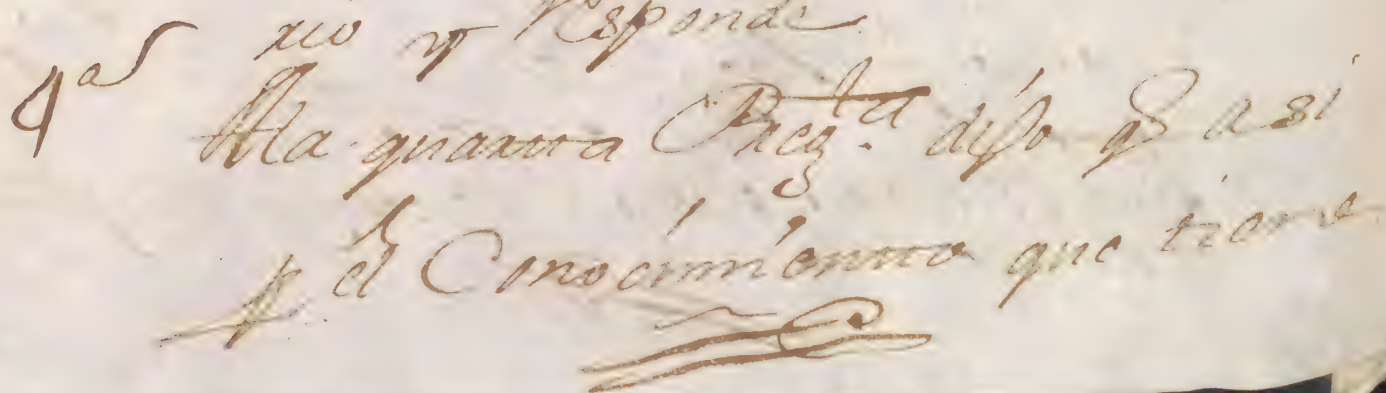 rio y Responde
4ª Ala quarta Preg.ta dijo q.e asi
p.r el Conocimiento que tiene